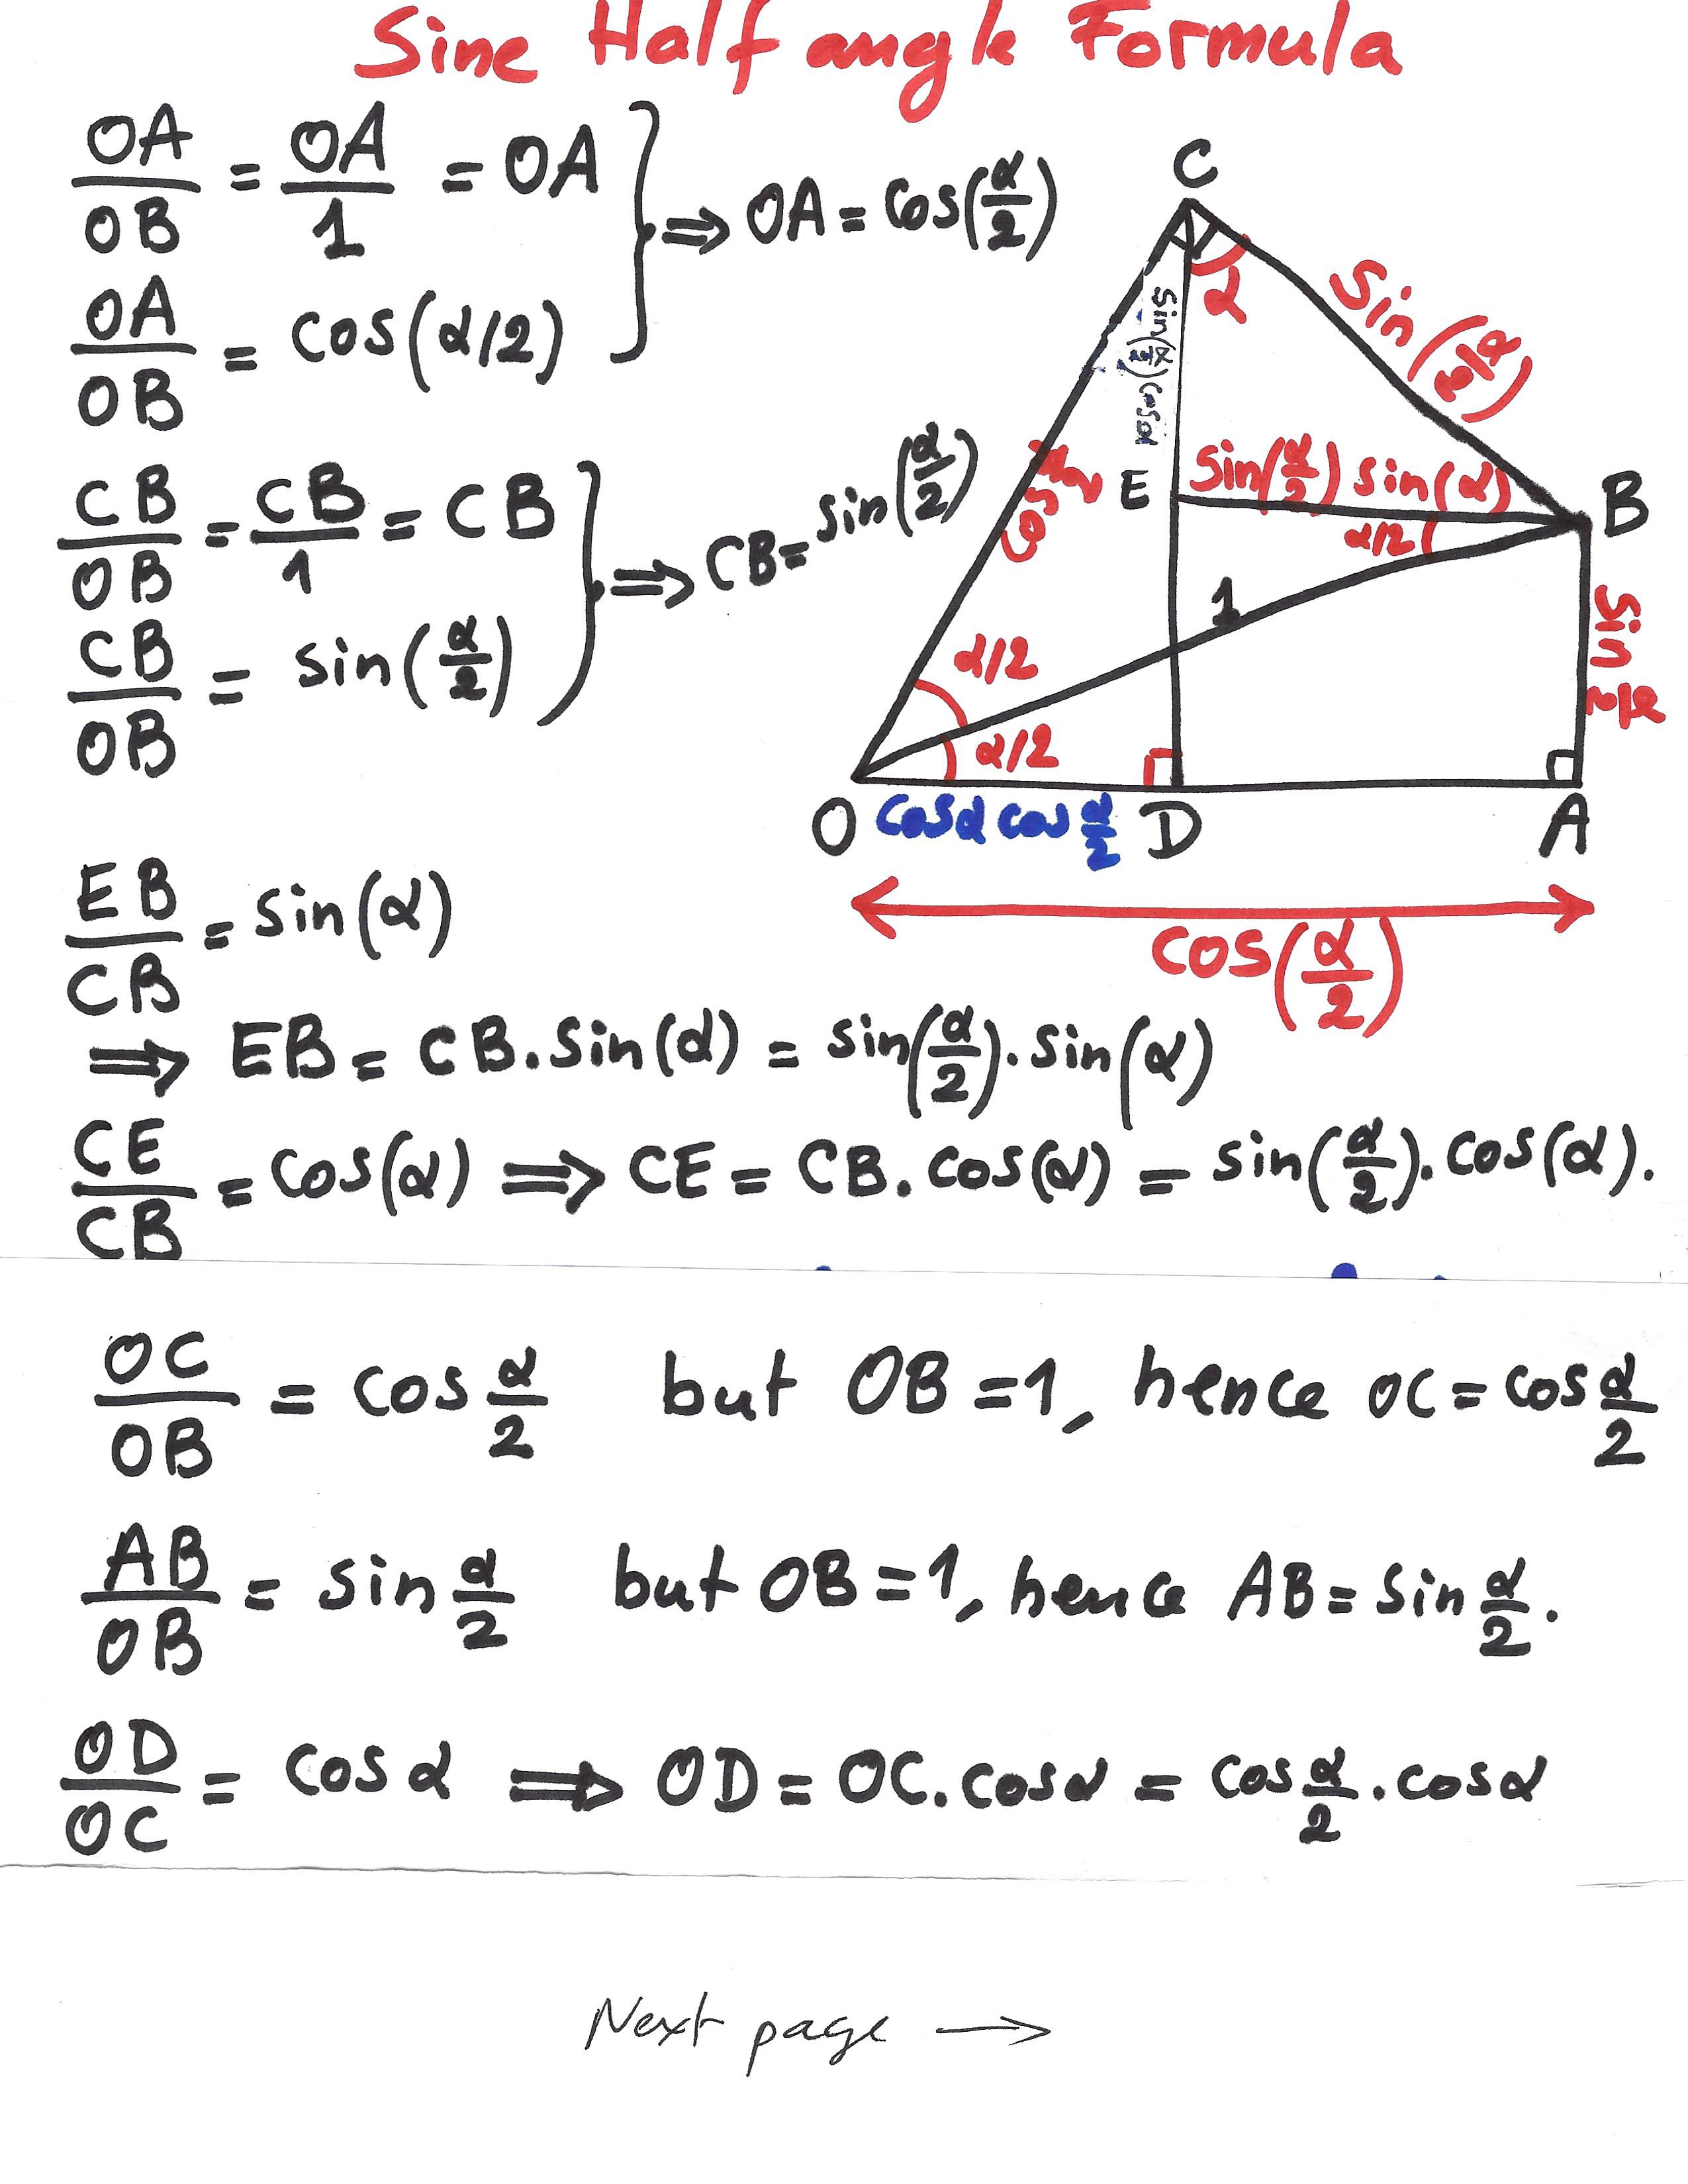 Sine Half angle Formula
OA/OB = OA/1 = OA
OA/OB = cos(α/2)
⇒ OA = cos(α/2)
CB/OB = CB/1 = CB
CB/OB = sin(α/2)
⇒ CB = sin(α/2)
C
α
sin(α/2)
sin(α/2) cosα
cos α/2
E
sin(α/2) sin(α)
B
α/2
1
sin α/2
α/2
α/2
O
cosα cos α/2
D
A
cos(α/2)
EB/CB = sin(α)
⇒ EB = CB.sin(α) = sin(α/2).sin(α)
CE/CB = cos(α) ⇒ CE = CB.cos(α) = sin(α/2).cos(α).
OC/OB = cos α/2 but OB = 1, hence OC = cos α/2
AB/OB = sin α/2 but OB = 1, hence AB = sin α/2.
OD/OC = cos α ⇒ OD = OC.cosα = cos α/2.cosα
Next page →